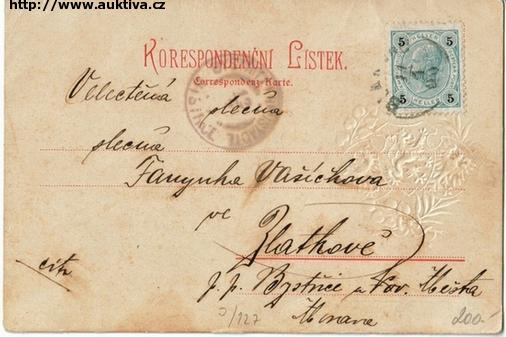 http://www.auktiva.cz
KORESPONDENČNÍ LÍSTEK.
Correspondenz-Karte.
5 5
HELLER
5 5
Velectěná slečna
slečna
Fanynka Vašíchova
ve
Zlatkově
ctz
p. p. Bystřice u Nov. Města
Morava
5/127
200-